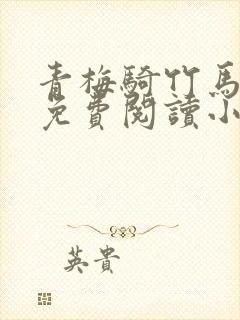 青梅騎竹馬
免費閱讀小
英貴